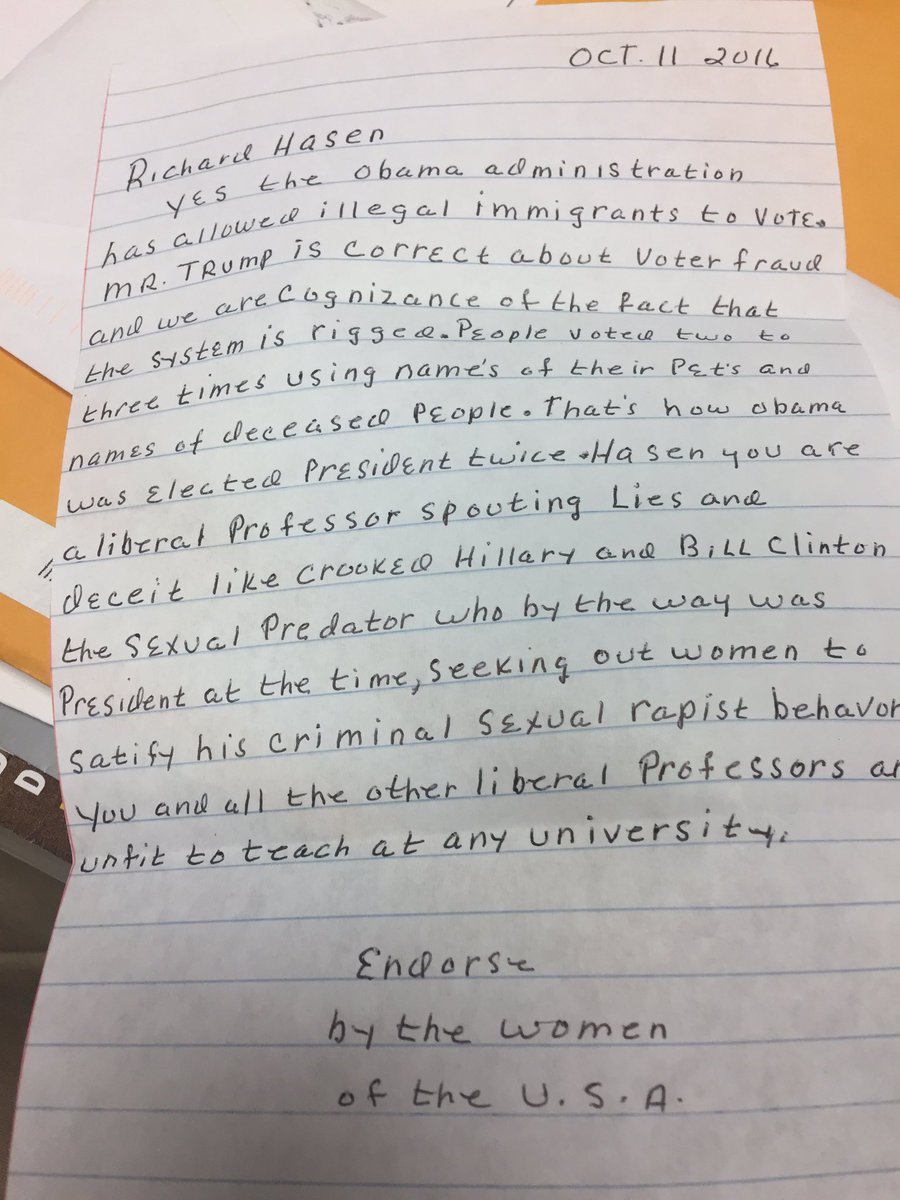 OCT. 11 2016
Richard Hasen
YES the Obama administration
has allowed illegal immigrants to VOTE.
MR. TRUMP is CORRECT about Voter fraud
and we are cognizance of the fact that
the SYSTEM is rigged. PEOPLE voted two to
three times using name's of their PET's and
names of deceased PEOPLE. That's how Obama
was Elected PRESIDENT twice. Hasen you are
a liberal Professor spouting Lies and
deceit like CROOKED Hillary and BILL Clinton
the SEXUAL Predator who by the way was
PRESIDENT at the time, seeking out women to
Satify his criminal SEXUAL rapist behavor
You and all the other liberal Professors ar
unfit to teach at any university.
Endorse
by the women
of the U.S.A.
D